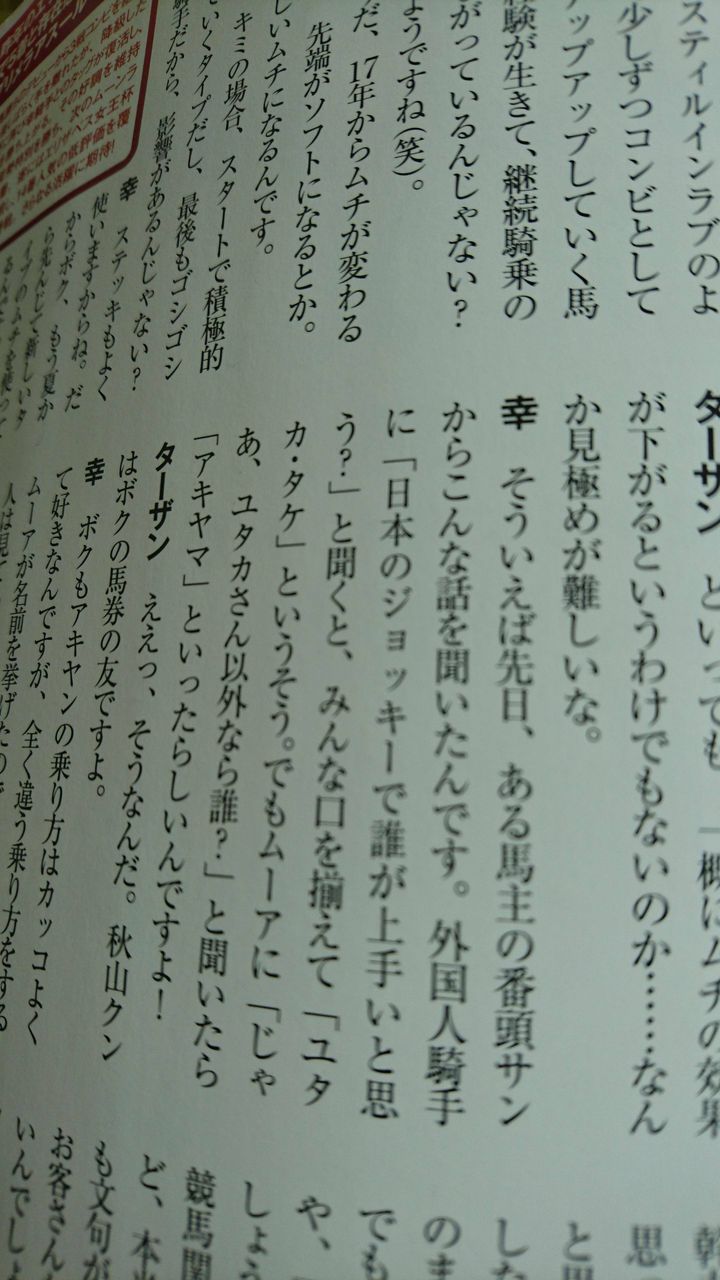 スティルインラブのよ
少しずつコンビとして
アップアップしていく馬
験が生きて、継続騎乗の
がっているんじゃない?
ようですね(笑)。
だ、17年からムチが変わる
先端がソフトになるとか。
しいムチになるんです。
キミの場合、スタートで積極的
ていくタイプだし、最後もゴシゴシ
騎手だから、影響があるんじゃない?
幸 ステッキもよく
使いますからね。だ
からボク、もう夏か
ら先んじて新しいタ
イプのムチを使って
ターザン といっても、一概にムチの効果
が下がるというわけでもないのか……なん
か見極めが難しいな。
幸 そういえば先日、ある馬主の番頭サン
からこんな話を聞いたんです。外国人騎手
に「日本のジョッキーで誰が上手いと思
う?」と聞くと、みんな口を揃えて「ユタ
カ・タケ」というそう。でもムーアに「じゃ
あ、ユタカさん以外なら誰?」と聞いたら
「アキヤマ」といったらしいんですよ!
ターザン ええっ、そうなんだ。秋山クン
はボクの馬券の友ですよ。
幸 ボクもアキヤンの乗り方はカッコよく
て好きなんですが、全く違う乗り方をする
ムーアが名前を挙げたので
人は見て
思
と思
した
のま
でも
や、
しょう
競馬関
ど、本当
も文句が
お客さん
いんでしょ